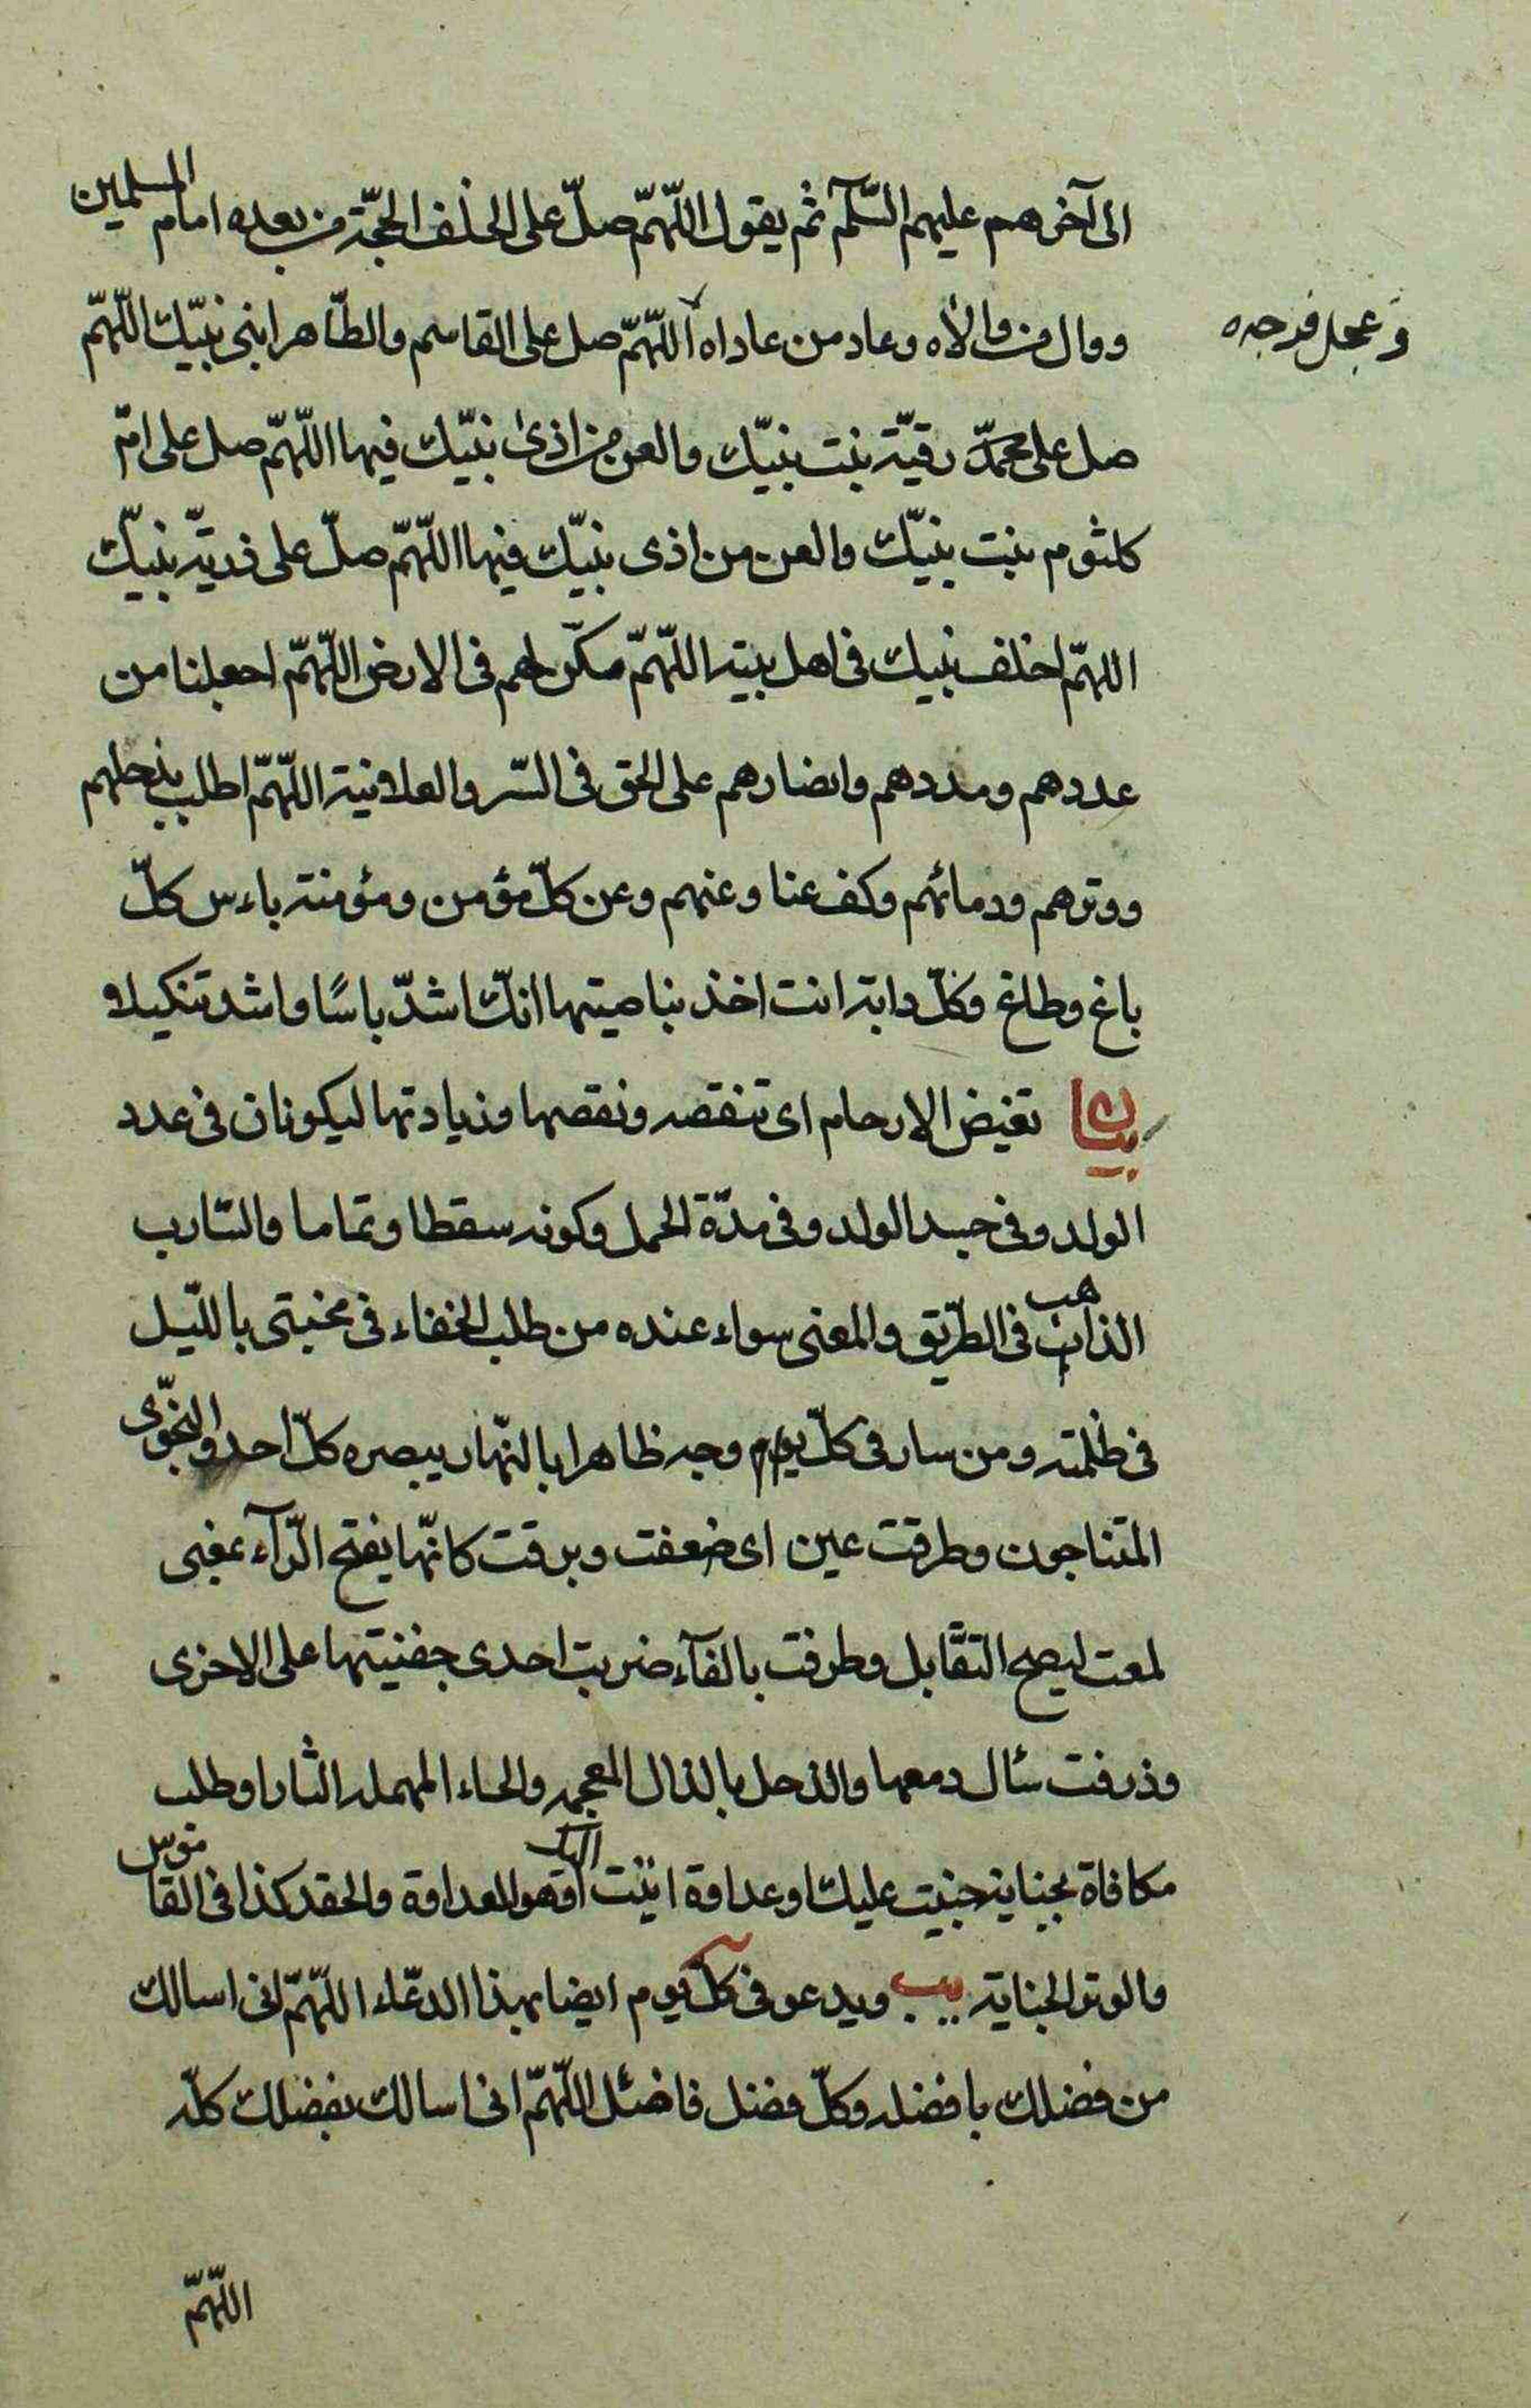 الى آخرهم عليهم السّلم ثم يقول اللّهمّ صلّ على الخلف الحجّة من بعده امام المسلمين
ووال من والاه وعاد من عاداه اللّهمّ صل على القاسم والطّاهر ابنى نبيّك اللّهمّ
وعجل فرجه
صل على محمّد رقيّة بنت نبيّك والعن من اذى نبيّك فيها اللّهمّ صل على امّ
كلثوم بنت نبيّك والعن من اذى نبيّك فيها اللّهمّ صلّ على ذريّة نبيّك
اللهمّ اخلف نبيك فى اهل بيته اللّهمّ مكّن لهم فى الارض اللّهمّ اجعلنا من
عددهم ومددهم وانصارهم على الحق فى السّر والعلانية اللّهمّ اطلب بذحلهم
ووترهم ودمائهم وكف عنا وعنهم وعن كلّ مؤمن ومؤمنة باءس كلّ
باغ وطاغ وكلّ دابة انت اخذ بناصيتها انّك اشدّ باسًا واشد تنكيلا و
بيان تغيض الارحام اى تنقصه ونقصها وزيادتها ليكونان فى عدد
الولد وفى جسد الولد وفى مدّة الحمل وكونه سقطا وتماما والسّارب
الذاهب فى الطّريق والمعنى سواء عنده من طلب الخفاء فى مختبى بااللّيل
فى ظلمته ومن سار فى كلّ وجه ظاهرا بالنّهار يبصره كلّ احد والنجّوى
المتناجون وطرقت عين اى ضعفت وبرقت كانّها بفتح الرّآء بمعنى
لمعت ليصح التقّابل وطرفت بالفآء ضربت احدى جفنيتها على الاخرى
وذرفت سئال دمعها والذحل بالذال المعجمه والحاء المهمله الثار او طلب
مكافاة بجناية جنيت عليك او عداوة اتيت اليك او هو العداوة والحقد كذا فى القاموس
والوتر الجناية يب ويدعو فى كلّ يوم ايضا بهذا الدعّاء اللّهمّ انى اسالك
من فضلك بافضله وكلّ فضل فاضئل اللّهمّ انى اسالك بفضلك كلّه
اللّهمّ